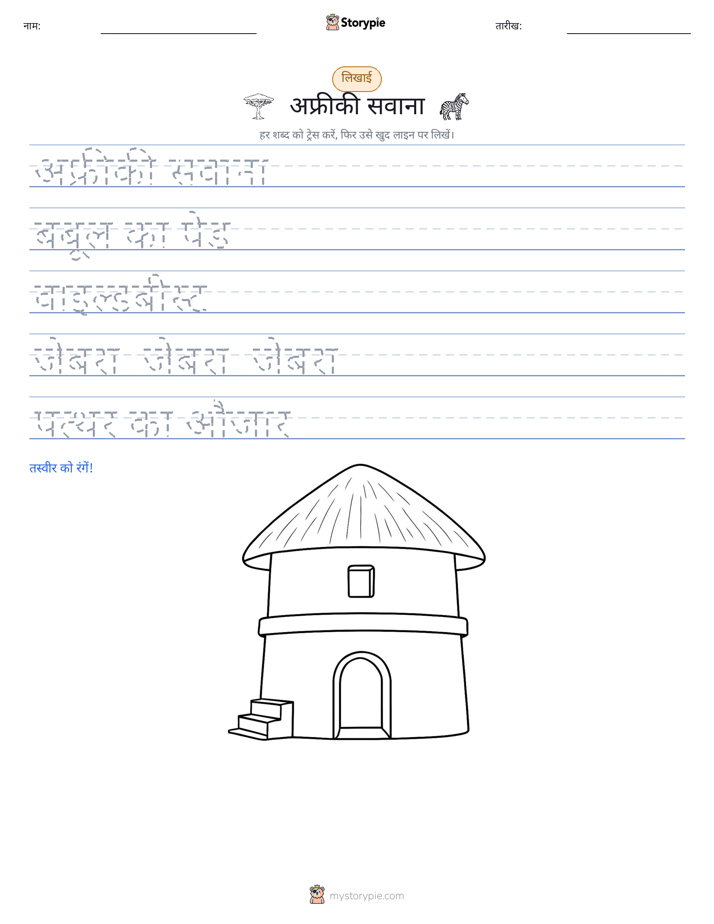 नाम:
Storypie
तारीख:
लिखाई
अफ्रीकी सवाना
हर शब्द को ट्रेस करें, फिर उसे खुद लाइन पर लिखें।
अफ्रीकी सवाना
बबूल का पेड
वाइल्डबीस्ट
जेबरा जेबरा जेबरा
पत्थर का औजार
तस्वीर को रंगें!
mystorypie.com